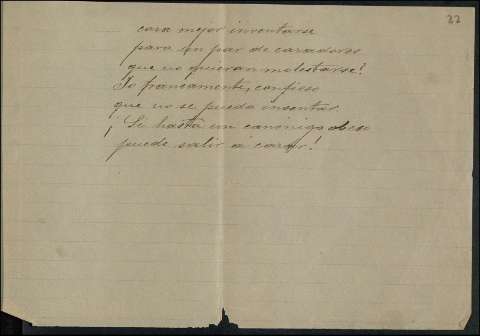 22
cosa mejor inventarse
para un par de cazadores
que no quieran molestarse!
Yo francamente, confieso
que no se pueda inventar
¡Si hasta un canónigo obeso
puede salir á cazar!